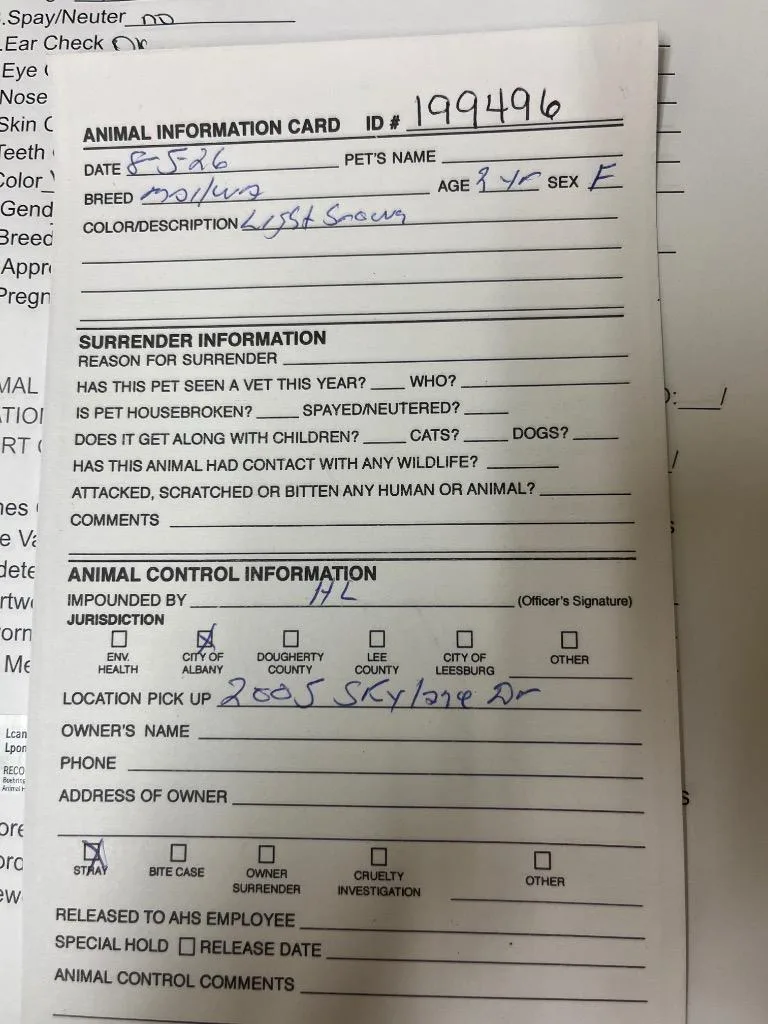 .Spay/Neuter no
.Ear Check OK
Eye
Nose
Skin C
Teeth
Color
Gend
Breed
Appr
Pregn
MAL
TION
RT
nes
e Va
dete
rtw
orn
Me
Lcan
Lpon
RECO
Boehring
Animal H
ore
ord
ew
ANIMAL INFORMATION CARD ID # 199496
DATE 8-5-26 PET'S NAME
BREED AGE yr SEX F
COLOR/DESCRIPTION Light
SURRENDER INFORMATION
REASON FOR SURRENDER
HAS THIS PET SEEN A VET THIS YEAR? WHO?
IS PET HOUSEBROKEN? SPAYED/NEUTERED?
DOES IT GET ALONG WITH CHILDREN? CATS? DOGS?
HAS THIS ANIMAL HAD CONTACT WITH ANY WILDLIFE?
ATTACKED, SCRATCHED OR BITTEN ANY HUMAN OR ANIMAL?
COMMENTS
ANIMAL CONTROL INFORMATION
IMPOUNDED BY HL (Officer's Signature)
JURISDICTION
ENV. HEALTH CITY OF ALBANY DOUGHERTY COUNTY LEE COUNTY CITY OF LEESBURG OTHER
LOCATION PICK UP 2005 Skylane Dr
OWNER'S NAME
PHONE
ADDRESS OF OWNER
STRAY BITE CASE OWNER SURRENDER CRUELTY INVESTIGATION OTHER
RELEASED TO AHS EMPLOYEE
SPECIAL HOLD RELEASE DATE
ANIMAL CONTROL COMMENTS